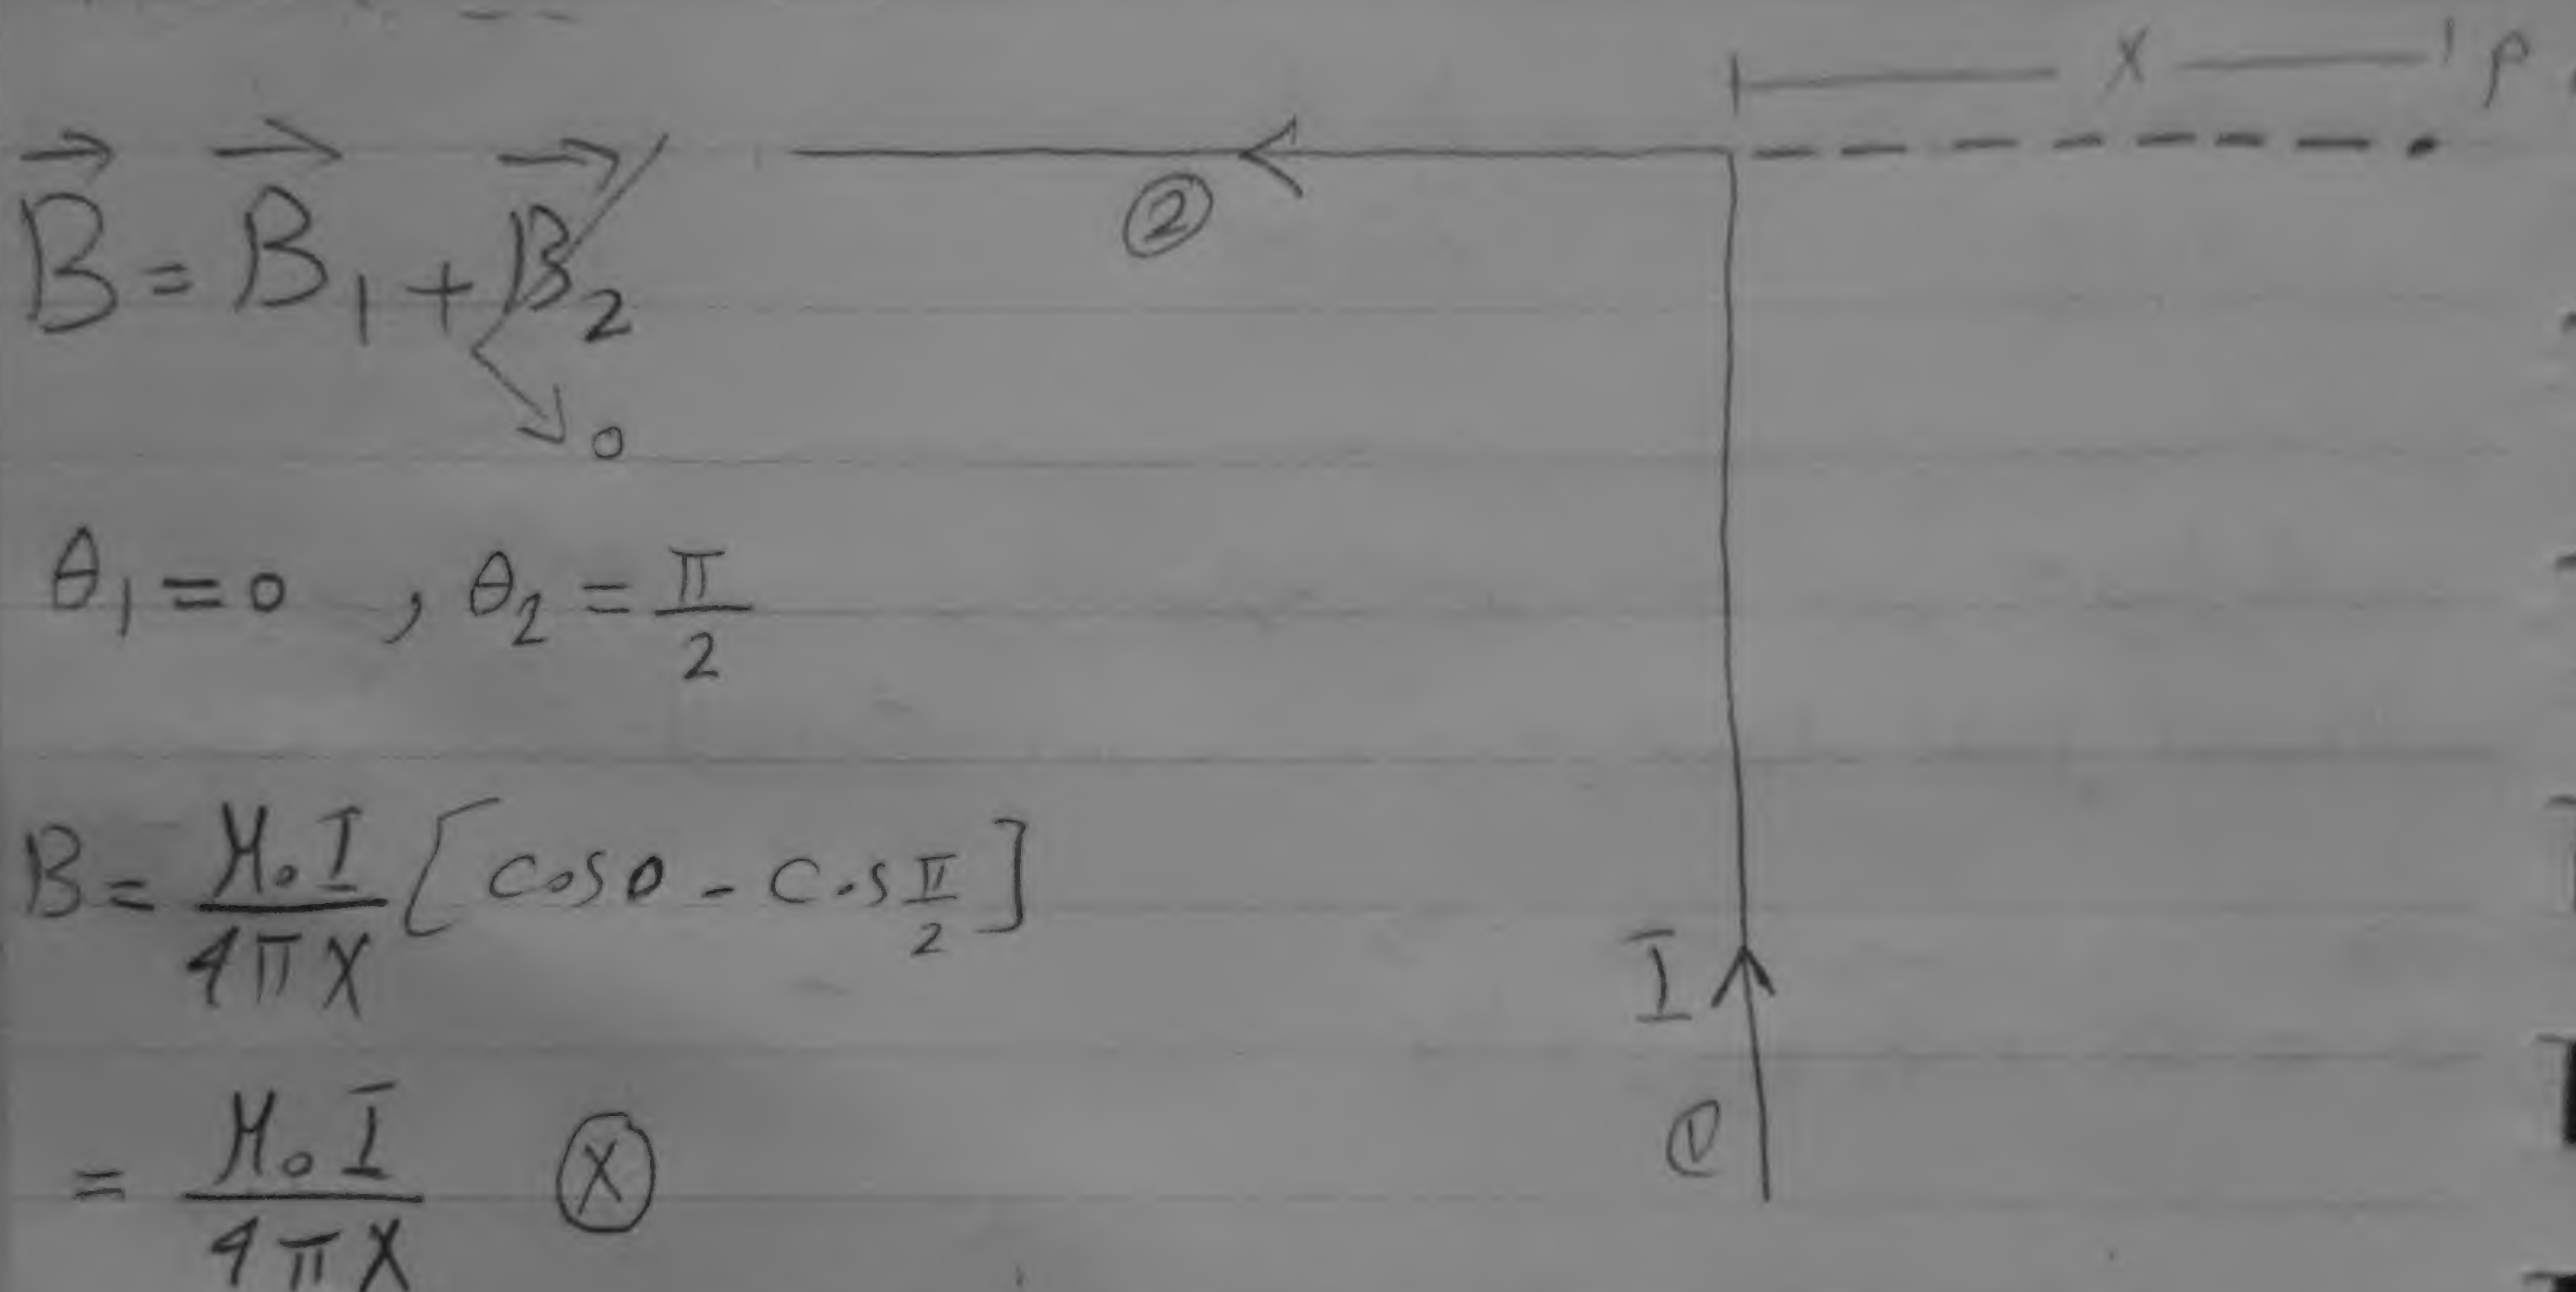 x P
B⃗ = B⃗₁ + B⃗₂
②
0
θ₁ = 0 , θ₂ = π/2
B = μ₀I/4πx [cos0 - cos π/2]
I
= μ₀I/4πx ⓧ
①